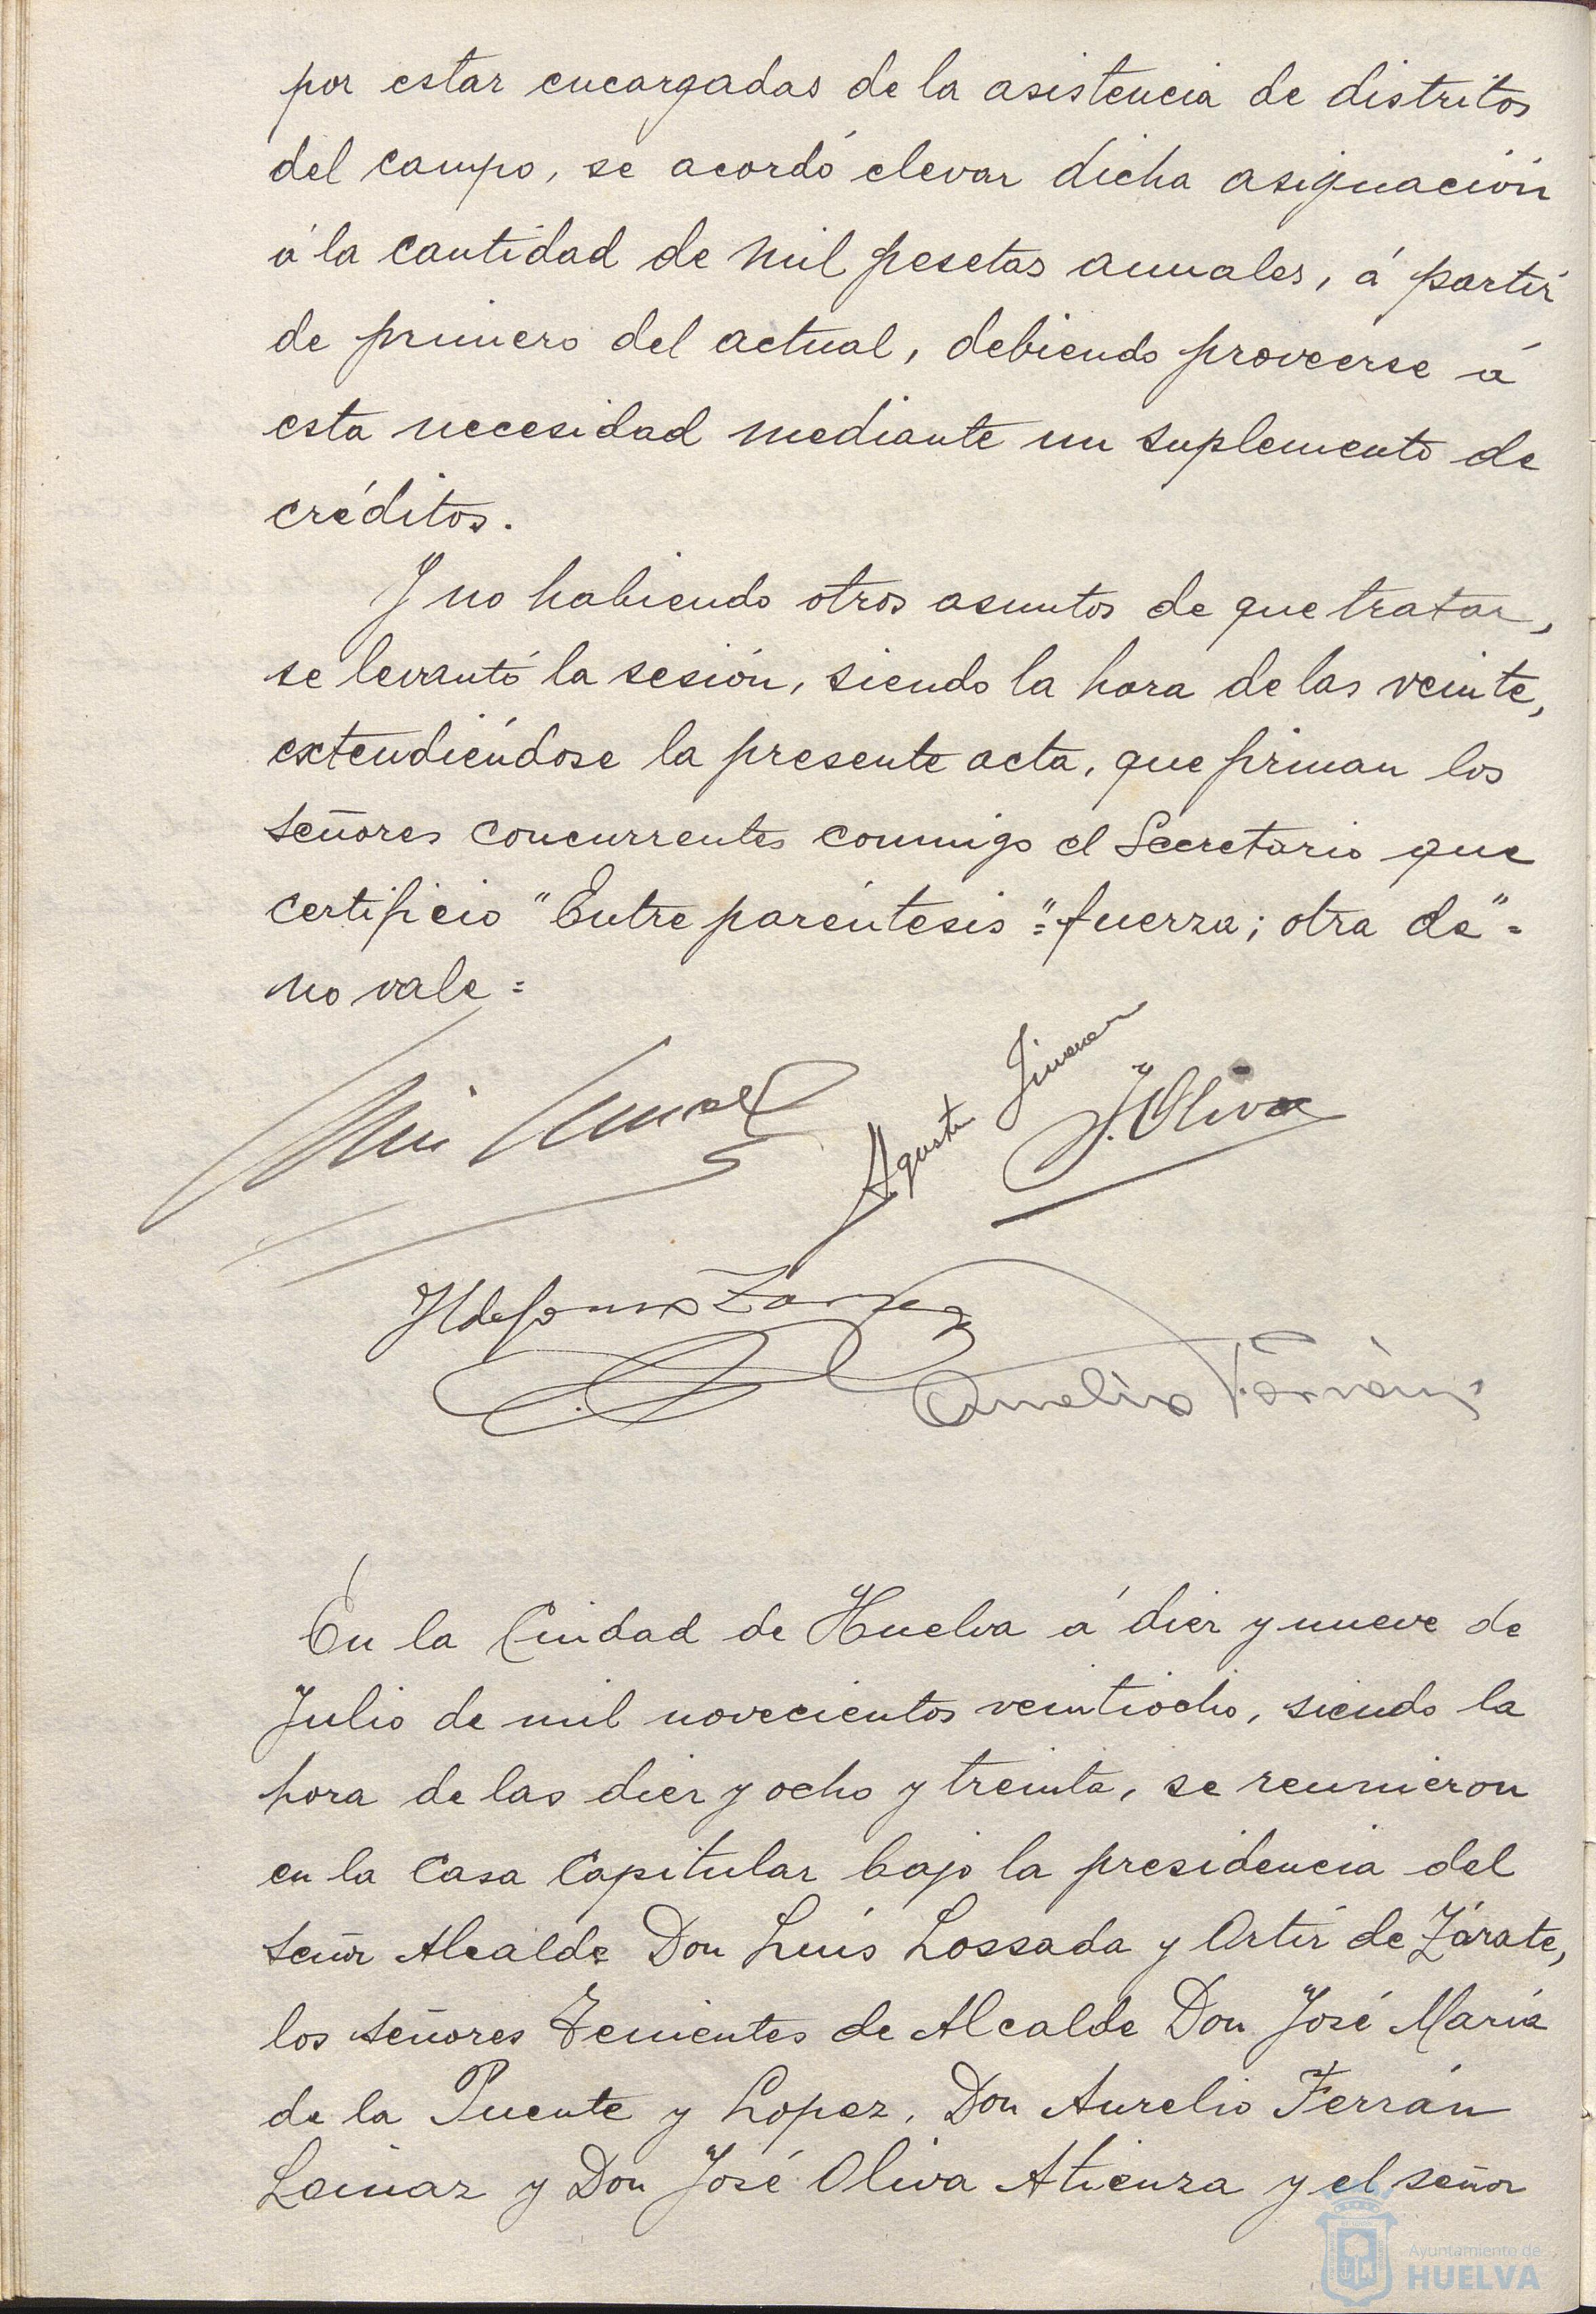 por estar encargadas de la asistencia de distritos
del campo, se acordó elevar dicha asignación
á la cantidad de mil pesetas anuales, á partir
de primero del actual, debiendo proveerse á
esta necesidad mediante un suplemento de
créditos.
Y no habiendo otros asuntos de que tratar,
se levantó la sesión, siendo la hora de las veinte,
extendiéndose la presente acta, que firman los
señores concurrentes conmigo el Secretario que
certificio "Entre paréntesis "=fuerza; otra de"=
no vale=
Agustin Jimenez
J. Oliva
Ildefonso
Aurelio Ferrán
En la Ciudad de Huelva á diez y nueve de
Julio de mil novecientos veintiocho, siendo la
hora de las diez y ocho y treinta, se reunieron
en la Casa Capitular bajo la presidencia del
señor Alcalde Don Luís Lossada y Ortíz de Zárate,
los señores Tenientes de Alcalde Don José María
de la Puente y Lopez, Don Aurelio Ferrán
Loinaz y Don José Oliva Atienza y el señor
Ayuntamiento de
HUELVA